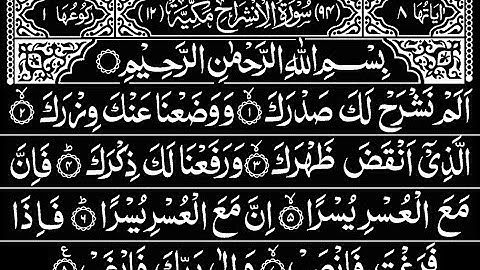 اٰیَاتُهَا ۸ (۹۴) سُوْرَةُ الْاِنْشِرَاحِ مَكِّیَّةٌ (۱۲) رُكُوْعُهَا ۱
بِسْمِ اللّٰهِ الرَّحْمٰنِ الرَّحِیْمِ
اَلَمْ نَشْرَحْ لَكَ صَدْرَكَ ۱ وَوَضَعْنَا عَنْكَ وِزْرَكَ ۲
الَّذِیْۤ اَنْقَضَ ظَهْرَكَ ۳ وَرَفَعْنَا لَكَ ذِكْرَكَ ۴ فَاِنَّ
مَعَ الْعُسْرِ یُسْرًا ۵ اِنَّ مَعَ الْعُسْرِ یُسْرًا ۶ فَاِذَا